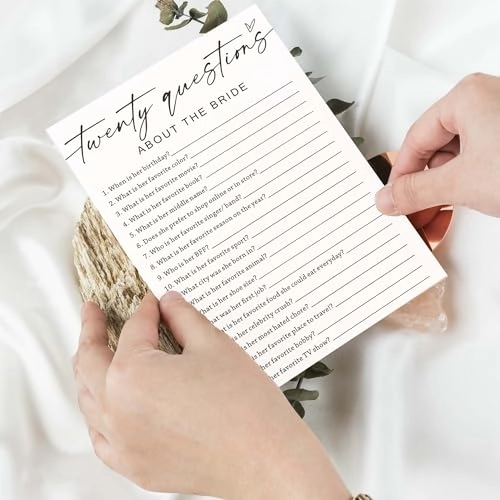 twenty questions
ABOUT THE BRIDE
1. When is her birthday?
2. What is her favorite color?
3. What is her favorite movie?
4. What is her favorite book?
5. What is her middle name?
6. Does she prefer to shop online or in store?
7. Who is her favorite singer/ band?
8. What is her favorite season on the year?
9. Who is her BFF?
10. What is her favorite sport?
What city was she born in?
What is her favorite animal?
is her shoe size?
was her first job?
is her favorite food she could eat everyday?
is her celebrity crush?
is her most hated chore?
is her favorite place to travel?
her favorite hobby?
her favorite TV show?